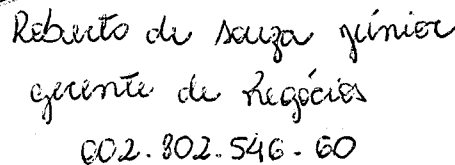 Roberto de souza júnior
gerente de Negócios
002.802.546-60